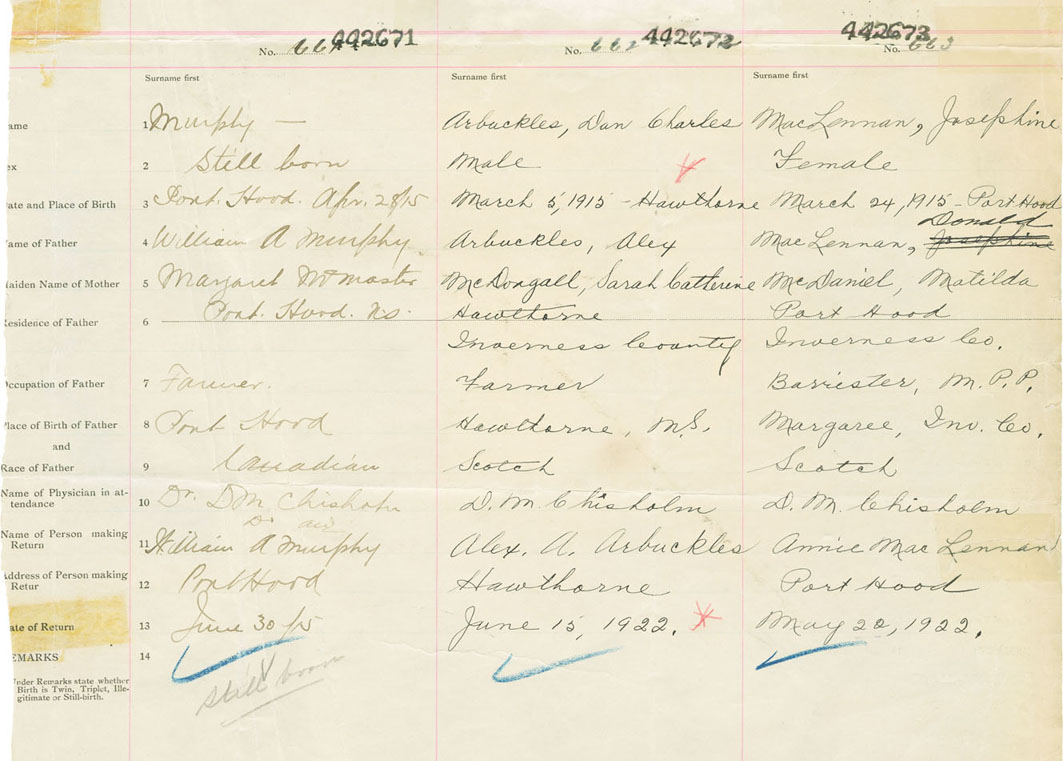 442671 442672 442673
No. 661 No. 662 No. 663
Surname first Surname first Surname first
ame 1 Murphy — Arbuckles, Dan Charles MacLennan, Josephine
ex 2 Still born Male Female
ate and Place of Birth 3 Port Hood. Apr. 28/15 March 5, 1915 - Hawthorne March 24, 1915 - Port Hood
Donald
ame of Father 4 William A Murphy Arbuckles, Alex MacLennan, Josephine
aiden Name of Mother 5 Margaret McMaster McDongall, Sarah Catterine McDaniel, Matilda
Residence of Father 6 Port. Hood. N.S. Hawthorne Port Hood
Inverness County Inverness Co.
Occupation of Father 7 Farmer. Farmer Barrister, M.P.P.
Place of Birth of Father 8 Port Hood Hawthorne, N.S. Margaree, Inv. Co.
and
Race of Father 9 Canadian Scotch Scotch
Name of Physician in at-
tendance 10 Dr. D M Chisholm D. M. Chisholm D. M. Chisholm
Name of Person making
Return 11 William A Murphy Alex. A. Arbuckles Annie MacLennan
Address of Person making
Retur 12 Port Hood Hawthorne Port Hood
ate of Return 13 June 30/15 June 15, 1922. May 22, 1922.
EMARKS 14
Still born
nder Remarks state whether
Birth is Twin, Triplet, Ille-
gitimate or Still-birth.